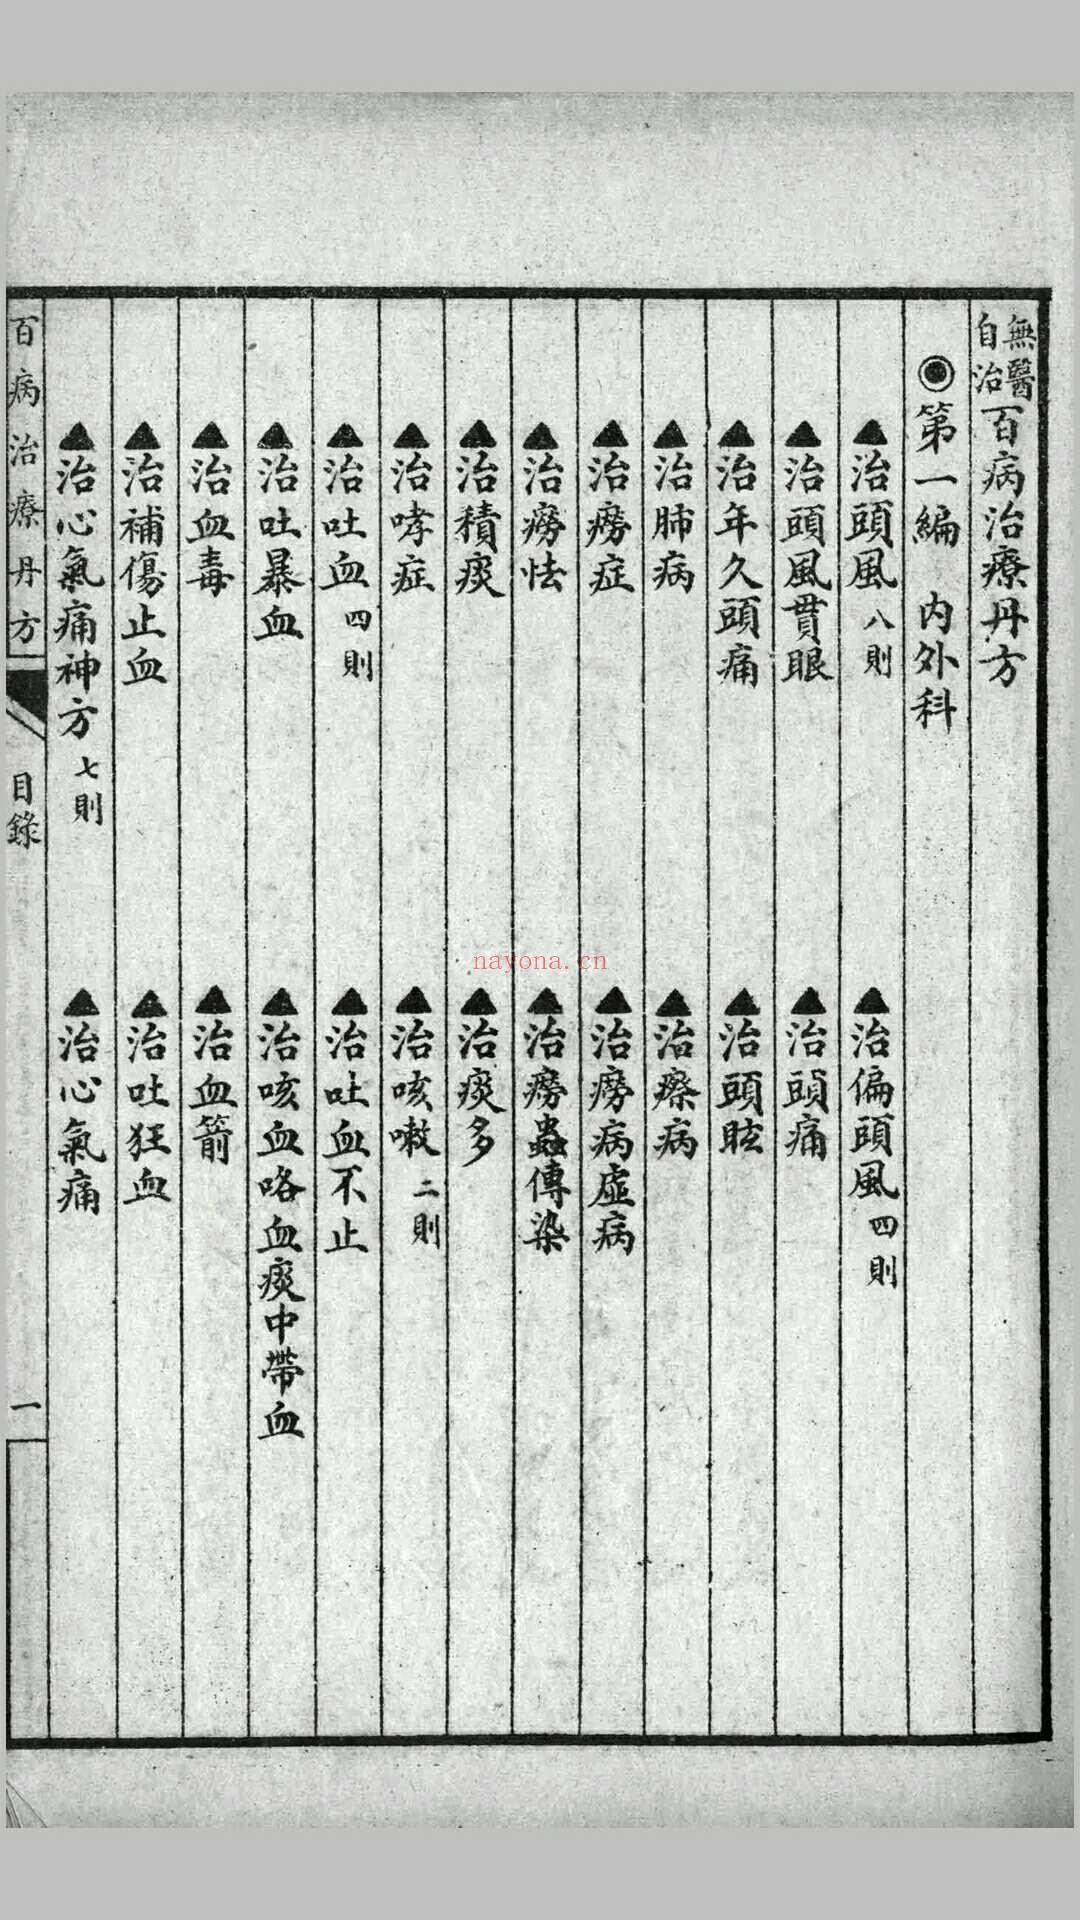 無醫自治百病治療丹方
◉第一編 內外科
▲治頭風 八則 ▲治偏頭風 四則
▲治頭風貫眼 ▲治頭痛
▲治年久頭痛 ▲治頭眩
▲治肺病 ▲治瘵病
▲治癆症 ▲治癆病虛病
▲治癆怯 ▲治癆蟲傳染
▲治積痰 ▲治痰多
▲治哮症 ▲治咳嗽 二則
▲治吐血 四則 ▲治吐血不止
▲治吐暴血 ▲治咳血咯血痰中帶血
▲治血毒 ▲治血箭
▲治補傷止血 ▲治吐狂血
▲治心氣痛神方 七則 ▲治心氣痛
百病治療丹方 目錄 一
nayona.cn